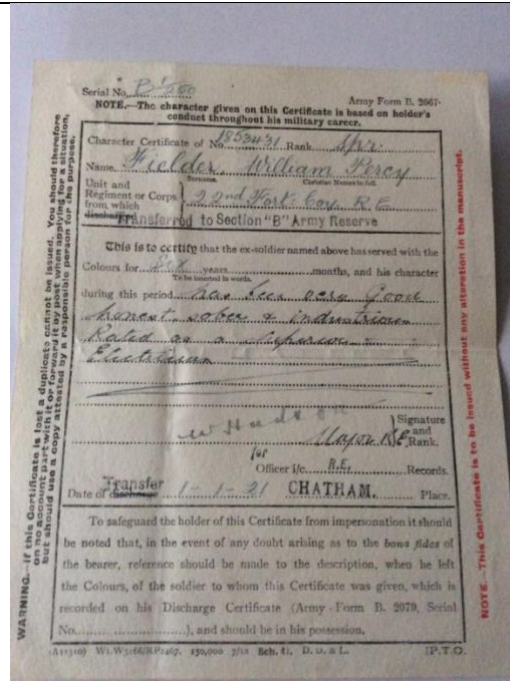 Serial No. B
Army Form B. 2067.
NOTE.—The character given on this Certificate is based on holder's
conduct throughout his military career.
Character Certificate of No. 1853431 Rank Spr.
Name Fielder William Percy
Surname. Christian Names in full.
Unit and
Regiment or Corps
from which
discharged
22nd Fort. Coy. R.E.
Transferred to Section "B" Army Reserve
This is to certify that the ex-soldier named above has served with the
Colours for Six years months, and his character
To be inserted in words.
during this period has been very good
honest, sober & industrious
Rated as a Superior
Electrician
W Hudson
Signature
and
Rank.
Major R.E.
for
Officer i/c R.E. Records.
Transfer
Date of discharge 1-1-31 CHATHAM. Place.
To safeguard the holder of this Certificate from impersonation it should
be noted that, in the event of any doubt arising as to the bona fides of
the bearer, reference should be made to the description, when he left
the Colours, of the soldier to whom this Certificate was given, which is
recorded on his Discharge Certificate (Army Form B. 2079, Serial
No. ), and should be in his possession.
150,000 7/18 Sch. 41. D. D. & L. [P.T.O.
WARNING.—If this Certificate is lost a duplicate cannot be issued. You should therefore
on no account part with it or forward it by post when applying for a situation,
but should use a copy attested by a responsible person for the purpose.
NOTE.—This Certificate is to be issued without any alteration in the manuscript.